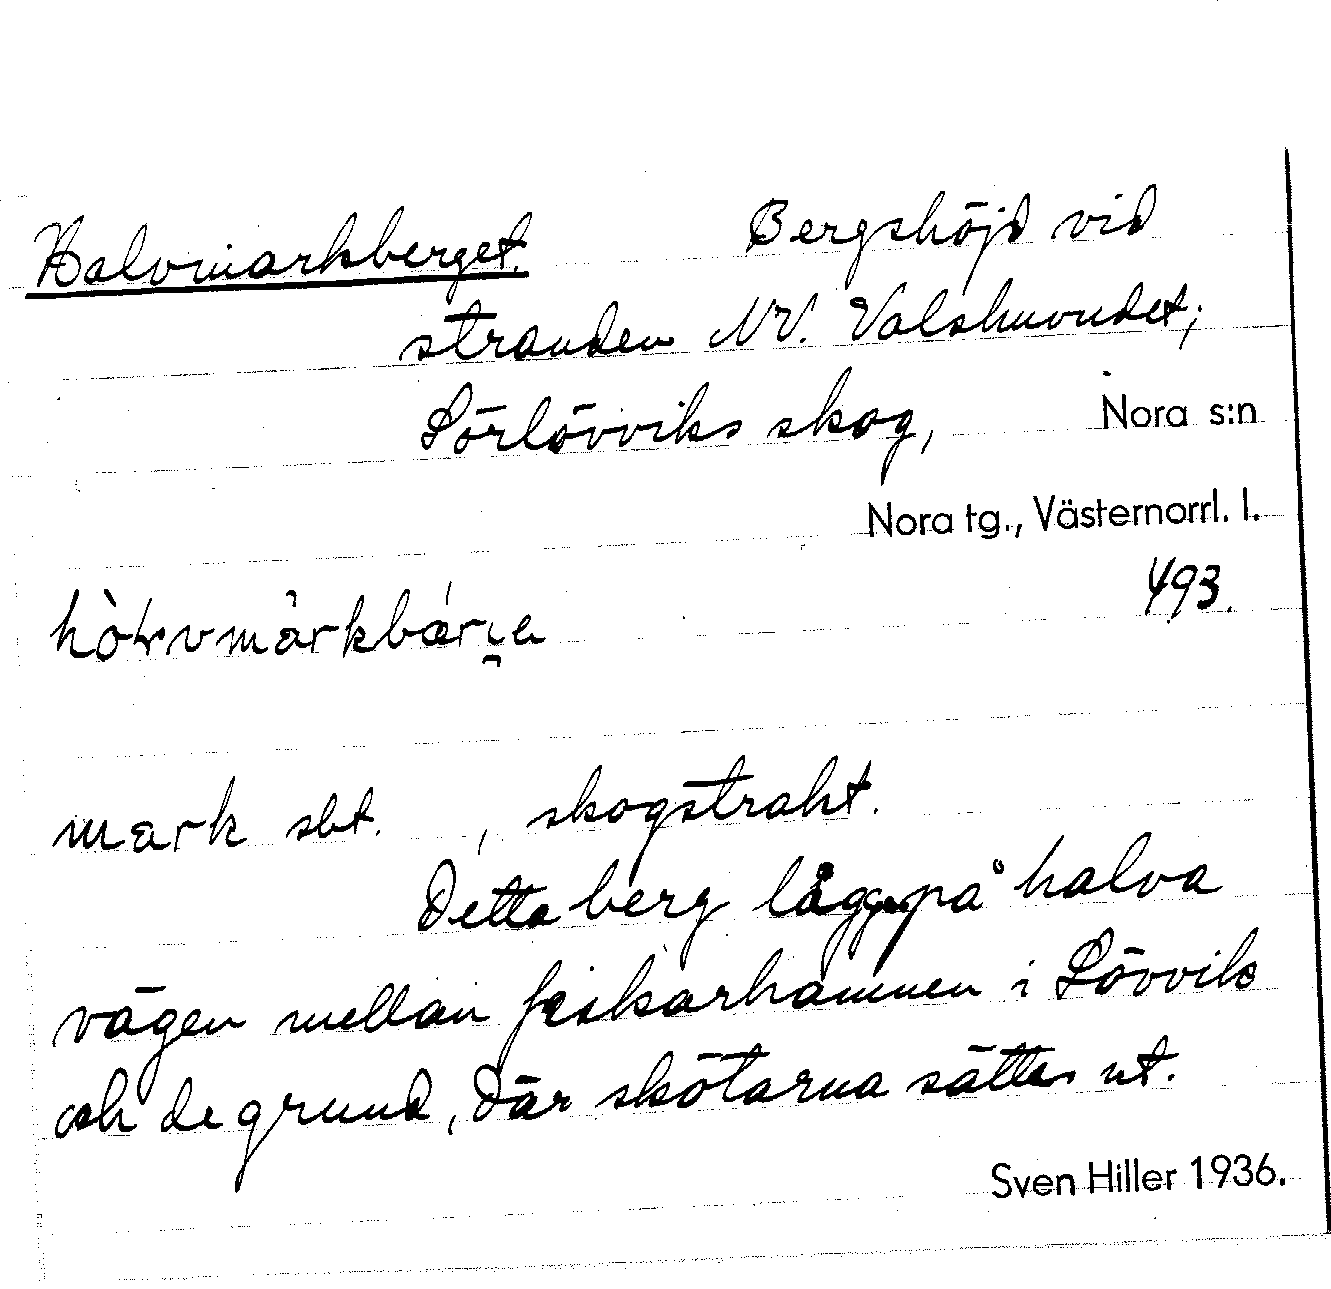 Halvmarkberget. Bergshöjd vid
stranden NV. Valshuvudet;
Sörlövviks skog, Nora s:n
Nora tg., Västernorrl. l.
493.
mark sbt. , skogstrakt.
Detta berg låg på halva
vägen mellan fiskarhamnen i Lövvik
och de grund, där skötarna sättes ut.
Sven Hiller 1936.